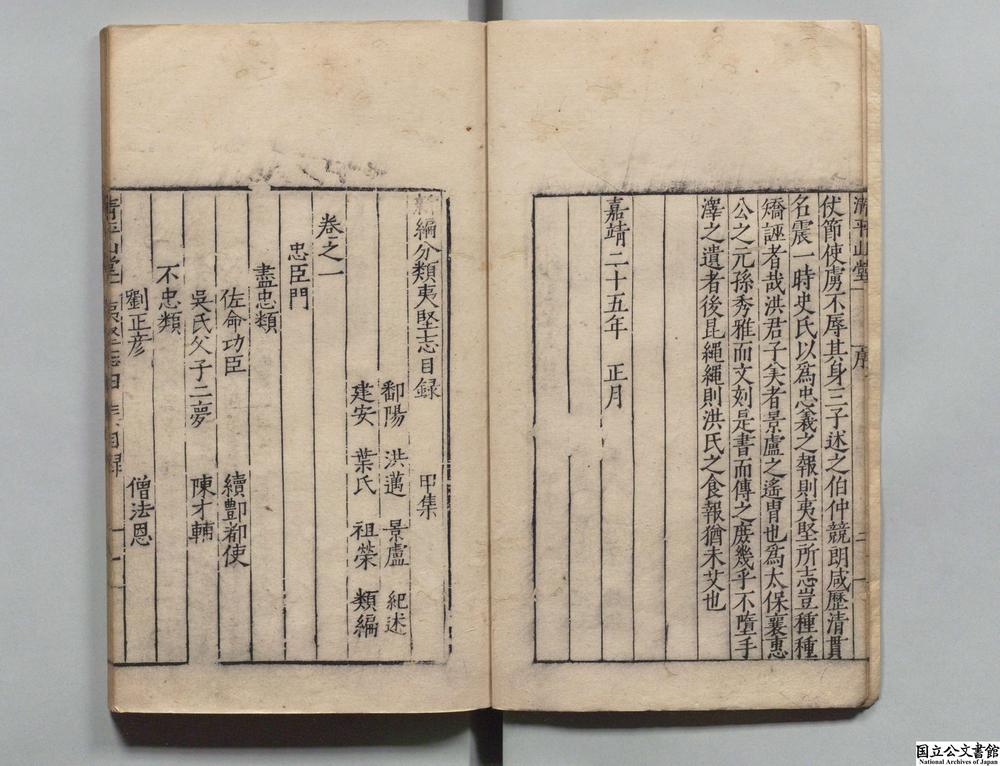 清平山堂 序 二
仗節使虜不辱其身三子述之伯仲競朗咸歷清貫
名震一時史氏以為忠義之報則夷堅所志豈種種
矯誣者哉洪君子美者景盧之遙胄也為太保襄惠
公之元孫秀雅而文刻是書而傳之庶幾乎不墮手
澤之遺者後昆繩繩則洪氏之食報猶未艾也
嘉靖二十五年 正月
新編分類夷堅志目録 甲集
鄱陽 洪邁 景盧 紀述
建安 葉氏 祖榮 類編
卷之一
忠臣門
盡忠類
佐命功臣 續酆都使
吳氏父子二夢 陳才輔
不忠類
劉正彦 僧法恩
清平山堂 夷堅志甲集目録 一
国立公文書館
National Archives of Japan